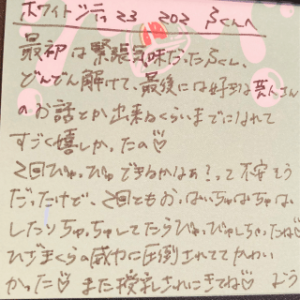 ホワイトシティ23 202 Fくんへ
最初は緊張気味だったFくん、
どんどん解けて、最後には好きな芸人さん
のお話とか出来るくらいまでになれて
すごく嬉しかったの♡
2回ぴゅっぴゅできるかなぁ?って不安そう
だったけど、2回ともおっぱいちゅぱちゅぱ
したりちゅっちゅしてたらぴゅっぴゅしちゃったね♡
ひざまくらの威力に圧倒されててかわい
かった♡ また授乳されにきてね♡